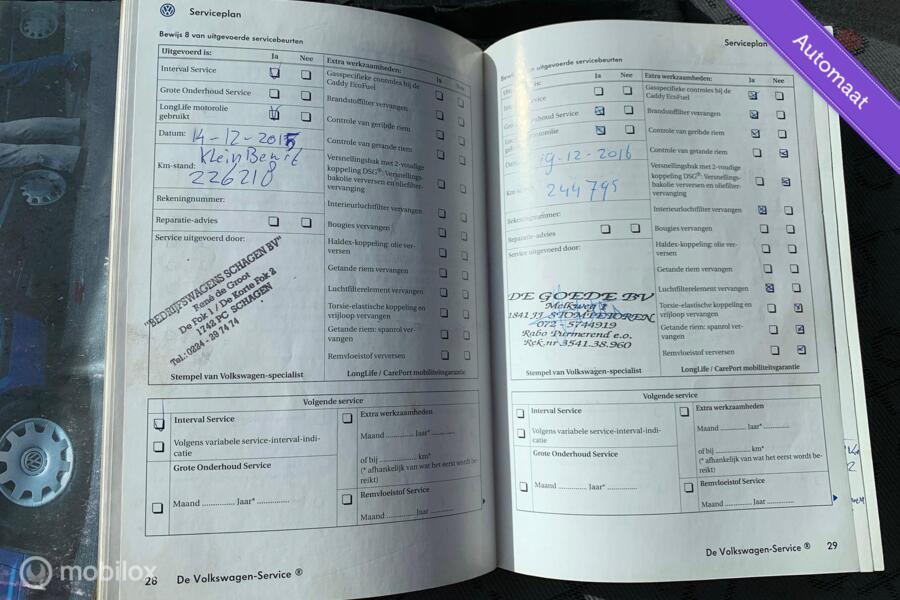 Serviceplan
Bewijs 8 van uitgevoerde servicebeurten
Uitgevoerd is: Ja Nee
Interval Service
Grote Onderhoud Service
LongLife motorolie
gebruikt
Datum: 14-12-2015
Klein Beurt
Km-stand: 226210
Rekeningnummer:
Reparatie-advies
Service uitgevoerd door:
"BEDRIJFSWAGENS SCHAGEN BV"
René de Groot
De Fok 1 / De Korte Fok 2
1742 PC SCHAGEN
Tel.: 0224 - 29 74 74
Stempel van Volkswagen-specialist
Extra werkzaamheden: Ja Nee
Gasspecifieke controles bij de
Caddy EcoFuel
Brandstoffilter vervangen
Controle van geribde riem
Controle van getande riem
Versnellingsbak met 2-voudige
koppeling DSG®: Versnellings-
bakolie verversen en oliefilter-
vervanging
Interieurluchtfilter vervangen
Bougies vervangen
Haldex-koppeling: olie ver-
versen
Getande riem vervangen
Luchtfilterelement vervangen
Torsie-elastische koppeling en
vrijloop vervangen
Getande riem: spanrol ver-
vangen
Remvloeistof verversen
LongLife / CarePort mobiliteitsgarantie
Volgende service
Interval Service
Volgens variabele service-interval-indi-
catie
Grote Onderhoud Service
Maand .............. Jaar* ..............
Extra werkzaamheden
Maand ............ Jaar* ............
of bij .............. km*
(* afhankelijk van wat het eerst wordt be-
reikt)
Remvloeistof Service
Maand ............ Jaar ............
28 De Volkswagen-Service ®
Serviceplan
van uitgevoerde servicebeurten
Ja Nee
Service
Onderhoud Service
19-12-2016
244795
Rekeningnummer:
Reparatie-advies
Service uitgevoerd door:
DE GOEDE BV
Melkweg
1841 JJ STOMPETOREN
072 - 5744919
Rabo Purmerend e.o.
Rek.nr 3541.38.960
Stempel van Volkswagen-specialist
Extra werkzaamheden: Ja Nee
Gasspecifieke controles bij de
Caddy EcoFuel
Brandstoffilter vervangen
Controle van geribde riem
Controle van getande riem
Versnellingsbak met 2-voudige
koppeling DSG®: Versnellings-
bakolie verversen en oliefilter-
vervanging
Interieurluchtfilter vervangen
Bougies vervangen
Haldex-koppeling: olie ver-
versen
Getande riem vervangen
Luchtfilterelement vervangen
Torsie-elastische koppeling en
vrijloop vervangen
Getande riem: spanrol ver-
vangen
Remvloeistof verversen
LongLife / CarePort mobiliteitsgarantie
Volgende service
Interval Service
Volgens variabele service-interval-indi-
catie
Grote Onderhoud Service
Maand .............. Jaar* ..............
Extra werkzaamheden
Maand ............ Jaar* ............
of bij .............. km*
(* afhankelijk van wat het eerst wordt be-
reikt)
Remvloeistof Service
Maand ............ Jaar ............
De Volkswagen-Service ® 29
Automaat
mobilox